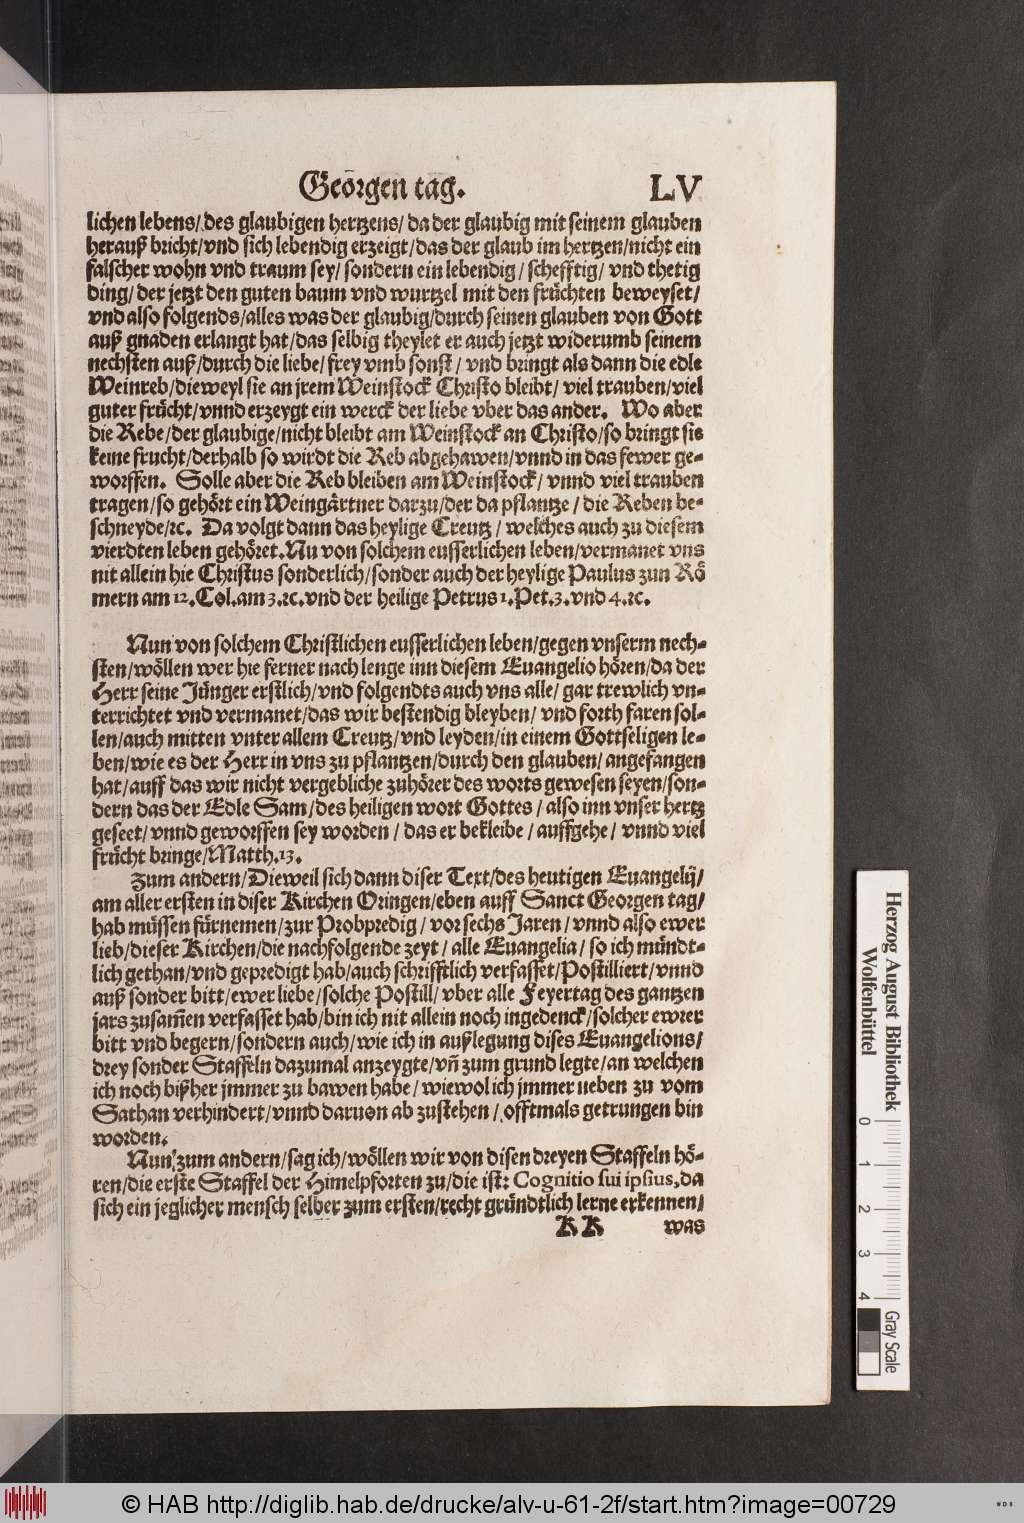 Georgen tag. LV
lichen lebens/ des glaubigen hertzens/ da der glaubig mit seinem glauben
herauß bricht/vnd sich lebendig erzeigt/das der glaub im hertzen/nicht ein
falscher wohn vnd traum sey/ sondern ein lebendig/ schefftig/ vnd thetig
ding/ der jetzt den guten baum vnd wurtzel mit den früchten beweyset/
vnd also folgends/alles was der glaubig/durch seinen glauben von Gott
auß gnaden erlangt hat/das selbig theylet er auch jetzt widerumb seinem
nechsten auß/durch die liebe/ frey vmb sonst/ vnd bringt als dann die edle
Weinreb/dieweyl sie an jrem Weinstock Christo bleibt/ viel trauben/viel
guter frücht/vnnd erzeygt ein werck der liebe vber das ander. Wo aber
die Rebe/der glaubige/nicht bleibt am Weinstock an Christo/so bringt sie
keine frucht/derhalb so wirdt die Reb abgehawen/vnnd in das fewer ge-
worffen. Solle aber die Reb bleiben am Weinstock/ vnnd viel trauben
tragen/so gehört ein Weingärtner darzu/der da pflantze/ die Reben be-
schneyde/ꝛc. Da volgt dann das heylige Creutz/ welches auch zu diesem
vierdten leben gehöret. Nu von solchem eusserlichen leben/vermanet vns
nit allein hie Christus sonderlich/sonder auch der heylige Paulus zun Rö
mern am 12. Col. am 3.ꝛc. vnd der heilige Petrus 1. Pet. 3. vnd 4.ꝛc.
Nun von solchem Christlichen eusserlichen leben/gegen vnserm nech-
sten/wöllen wer hie ferner nach lenge inn diesem Euangelio hören/da der
Herr seine Jünger erstlich/vnd folgendts auch vns alle/ gar trewlich vn-
terrichtet vnd vermanet/das wir bestendig bleyben/ vnd forth faren sol-
len/auch mitten vnter allem Creutz/vnd leyden/in einem Gottseligen le-
ben/wie es der Herr in vns zu pflantzen/durch den glauben/ angefangen
hat/auff das wir nicht vergebliche zuhörer des worts gewesen seyen/son-
dern das der Edle Sam/des heiligen wort Gottes/ also inn vnser hertz
geseet/ vnnd geworffen sey worden/ das er bekleibe/ auffgehe/ vnnd viel
frücht bringe/Matth. 13.
Zum andern/Dieweil sich dann diser Text/des heutigen Euangelij/
am aller ersten in diser Kirchen Oringen/eben auff Sanct Georgen tag/
hab müssen fürnemen/zur Probpredig/ vor sechs Jaren/ vnnd also ewer
lieb/dieser Kirchen/die nachfolgende zeyt/ alle Euangelia/ so ich mündt-
lich gethan/vnd gepredigt hab/auch schrifftlich verfasset/Postilliert/vnnd
auß sonder bitt/ewer liebe/solche Postill/vber alle Feyertag des gantzen
jars zusam̃en verfasset hab/bin ich nit allein noch ingedenck/solcher ewrer
bitt vnd begern/sondern auch/wie ich in außlegung dises Euangelions/
drey sonder Staffeln dazumal anzeygte/vñ zum grund legte/an welchen
ich noch bißher jmmer zu bawen habe/ wiewol ich jmmer neben zu vom
Sathan verhindert/vnnd daruon ab zustehen/ offtmals getrungen bin
worden.
Nun zum andern/sag ich/wöllen wir von disen dreyen Staffeln hö-
ren/die erste Staffel der Himelpforten zu/die ist: Cognitio sui ipsius, da
sich ein jeglicher mensch selber zum ersten/recht gründtlich lerne erkennen/
KK was
Herzog August Bibliothek
Wolfenbüttel
0 1 2 3 4
Gray Scale
© HAB http://diglib.hab.de/drucke/alv-u-61-2f/start.htm?image=00729